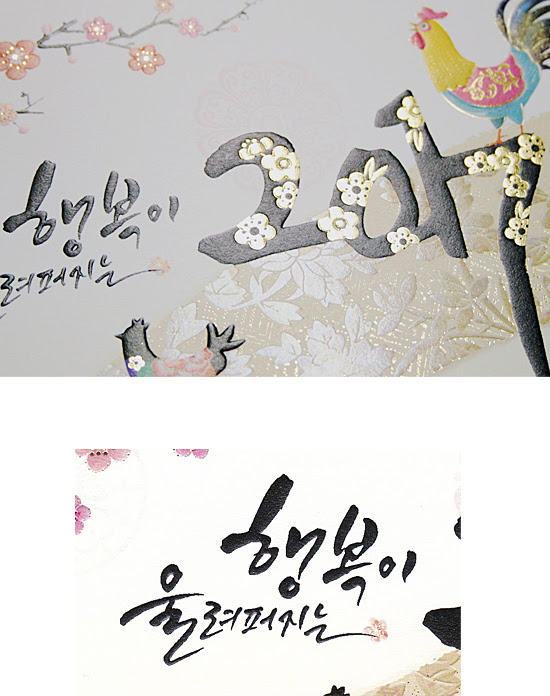 2017
행복이
려퍼지는
행복이
울려퍼지는